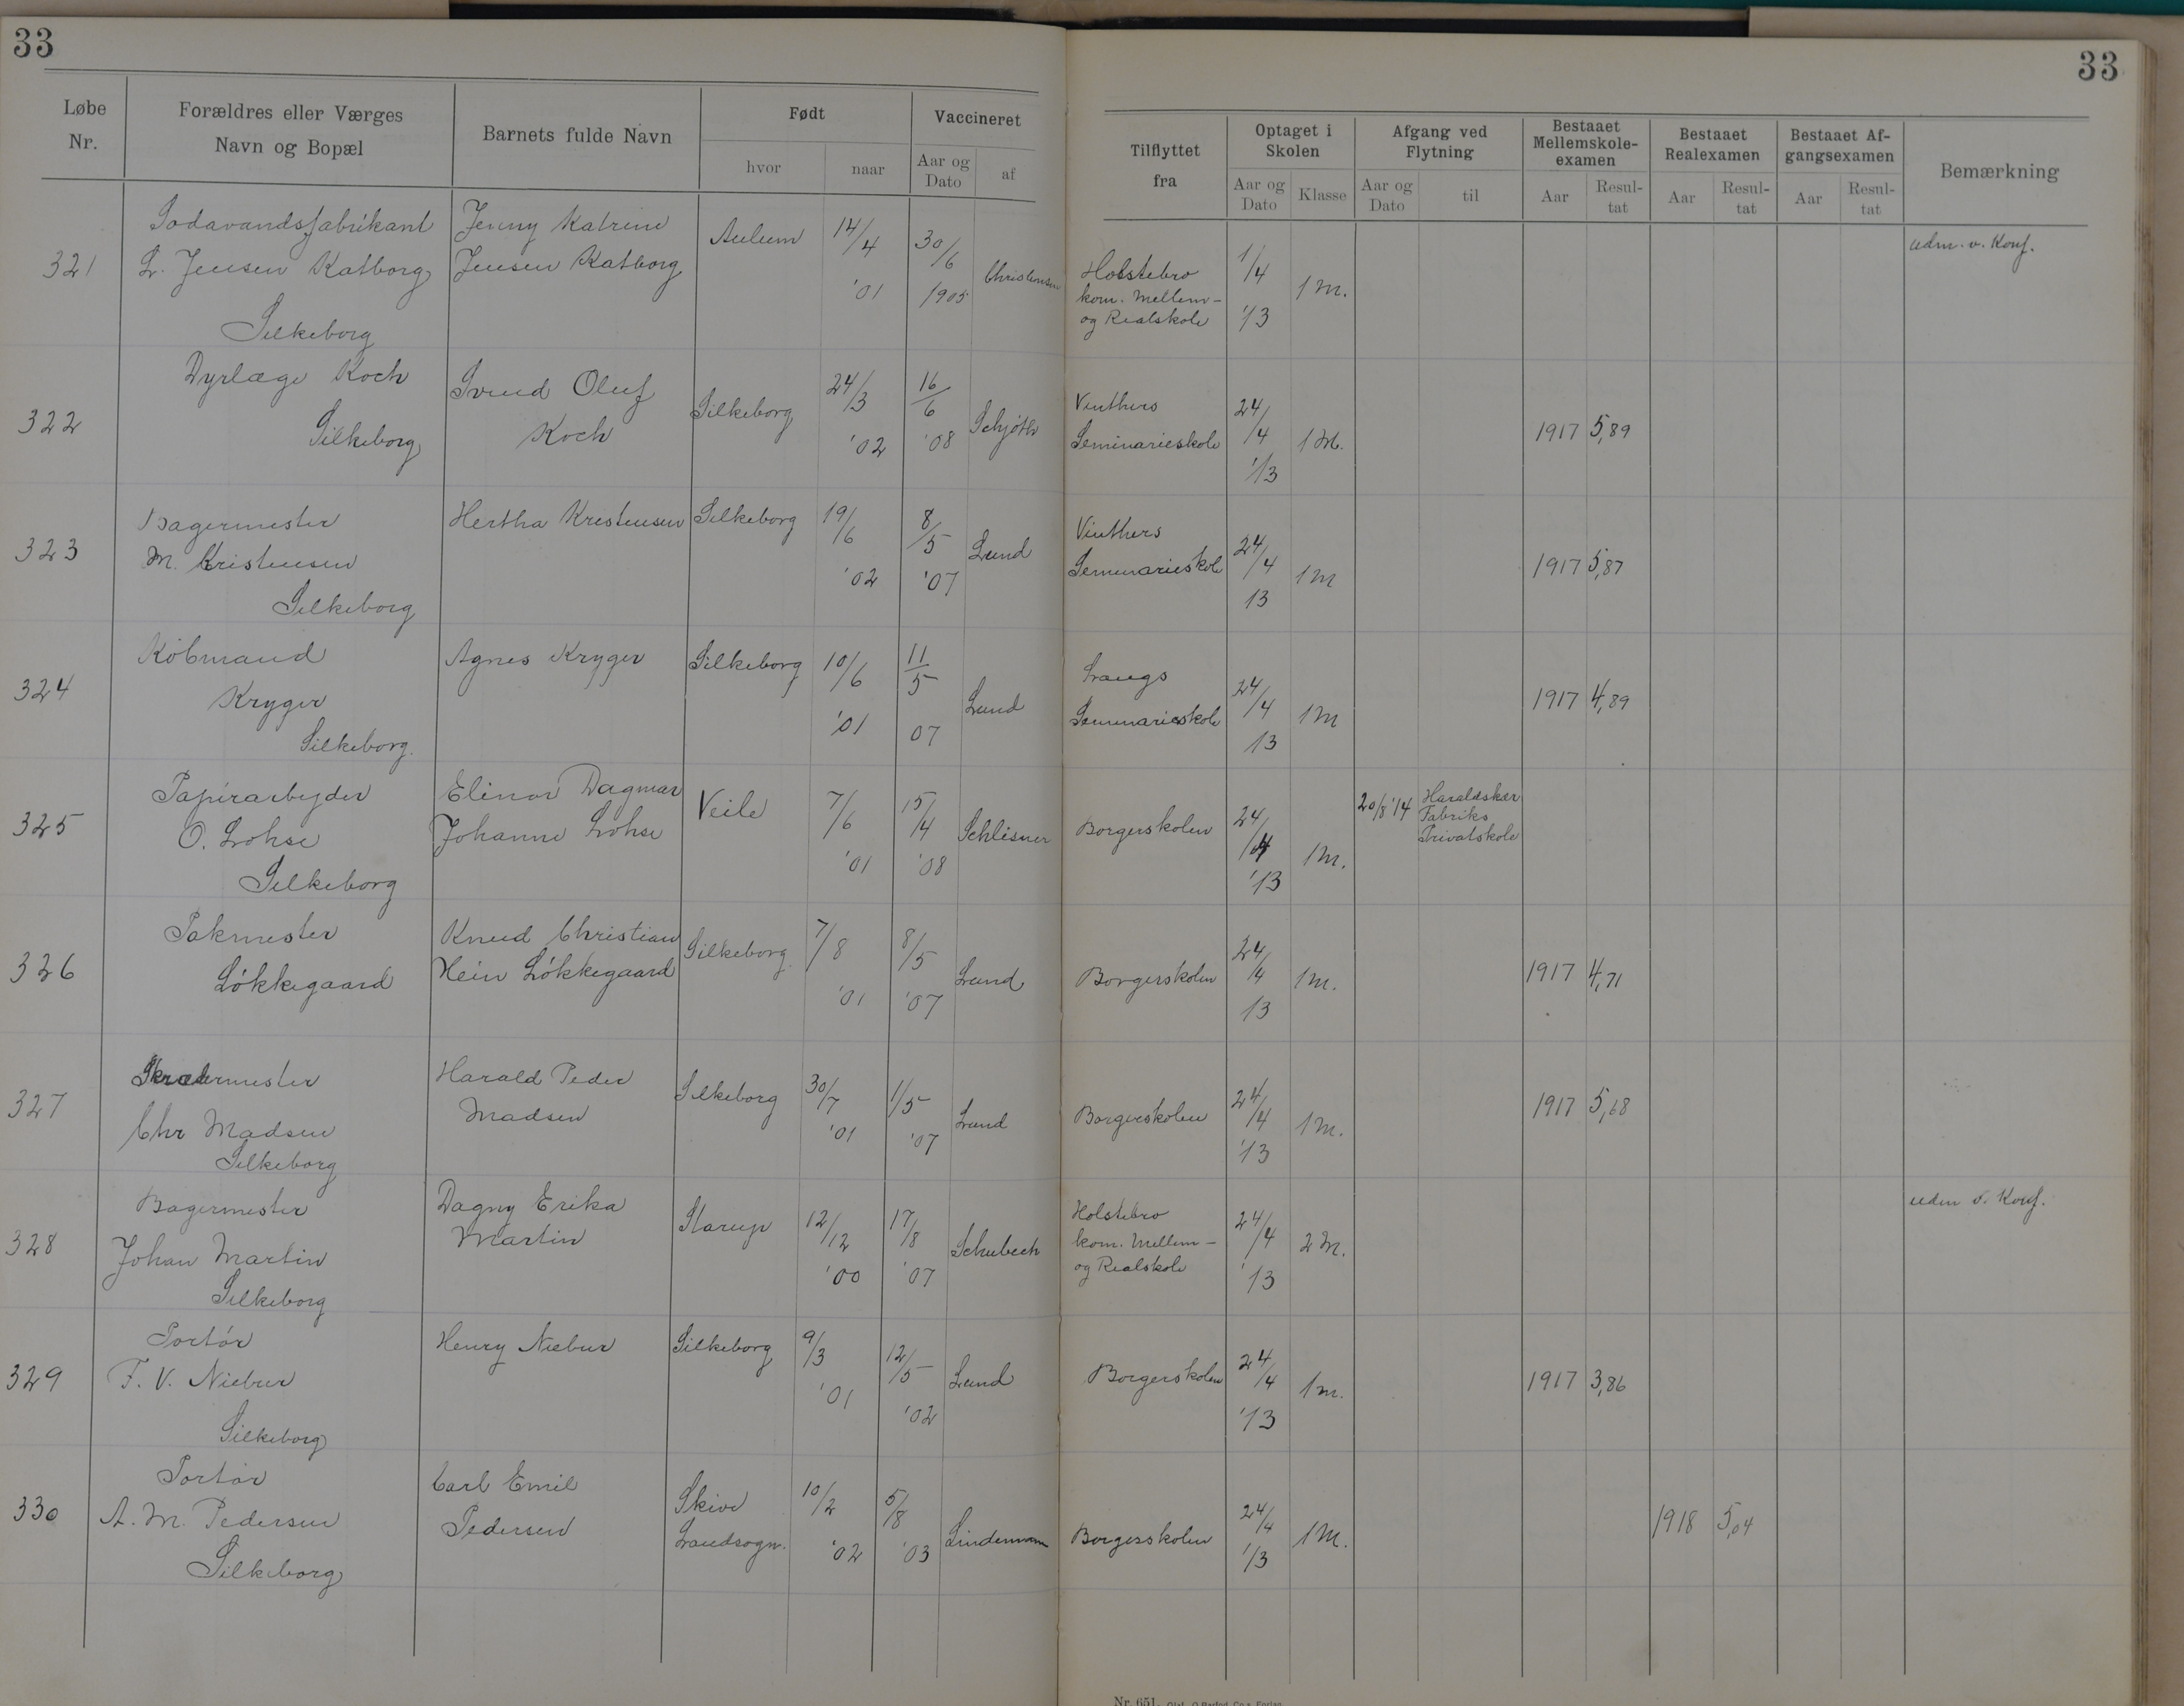 33
33
Løbe Nr.
Forældres eller Værges Navn og Bopæl
Barnets fulde Navn
Født
hvor
naar
Vaccineret
Aar og Dato
af
Tilflyttet fra
Optaget i Skolen
Aar og Dato
Klasse
Afgang ved Flytning
Aar og Dato
til
Bestaaet Mellemskole-examen
Aar
Resul-tat
Bestaaet Realexamen
Aar
Resul-tat
Bestaaet Af-gangsexamen
Aar
Resul-tat
Bemærkning
321
Sodavandsfabrikant
L. Jensen Katborg
Silkeborg
Jenny Katrine
Jensen Katborg
Aulum
14/4
'01
30/6
1905
Christensen
Holstebro
kom. Mellem-
og Realskole
1/4
'13
1 M.
udm. v. Konf.
322
Dyrlæge Koch
Silkeborg
Svend Oluf
Koch
Silkeborg
24/3
'02
16/6
'08
Schjöth
Vinthers
Seminarieskole
24/4
'13
1 M.
1917 5,89
323
Bagermester
M. Kristensen
Silkeborg
Hertha Kristensen
Silkeborg
19/6
'02
8/5
'07
Lund
Vinthers
Seminarieskole
24/4
13
1 M
1917 5,87
324
Købmand
Kryger
Silkeborg.
Agnes Kryger
Silkeborg
10/6
'01
11/5
07
Lund
Langs
Seminarieskole
24/4
13
1 M
1917 4,89
325
Papirarbejder
O. Lohse
Silkeborg
Elinor Dagmar
Johanne Lohse
Veile
7/6
'01
15/4
'08
Schlisner
Borgerskolen
24/4
'13
1 M.
20/8 '14
Haraldskær
Fabriks
Privatskole
326
Pakmester
Løkkegaard
Knud Christian
Hein Løkkegaard
Silkeborg
7/8
'01
8/5
'07
Lund
Borgerskolen
24/4
13
1 M.
1917 4,71
327
Skrædermester
Chr Madsen
Silkeborg
Harald Peder
Madsen
Silkeborg
30/7
'01
1/5
'07
Lund
Borgerskolen
24/4
'13
1 M.
1917 5,68
328
Bagermester
Johan Martin
Silkeborg
Dagny Erika
Martin
Starup
12/12
'00
17/8
'07
Schubech
Holstebro
kom. Mellem-
og Realskole
24/4
'13
2 M.
udm v. Konf.
329
Portör
F. V. Niebur
Silkeborg
Henry Niebur
Silkeborg
9/3
'01
12/5
'02
Lund
Borgerskolen
24/4
'13
1 M.
1917 3,86
330
Portör
A. M. Pedersen
Silkeborg
Carl Emil
Pedersen
Skive
Landsogn.
10/2
'02
5/8
'03
Lindemann
Borgerskolen
24/4
'13
1 M.
1918 5,04
Nr. 651.